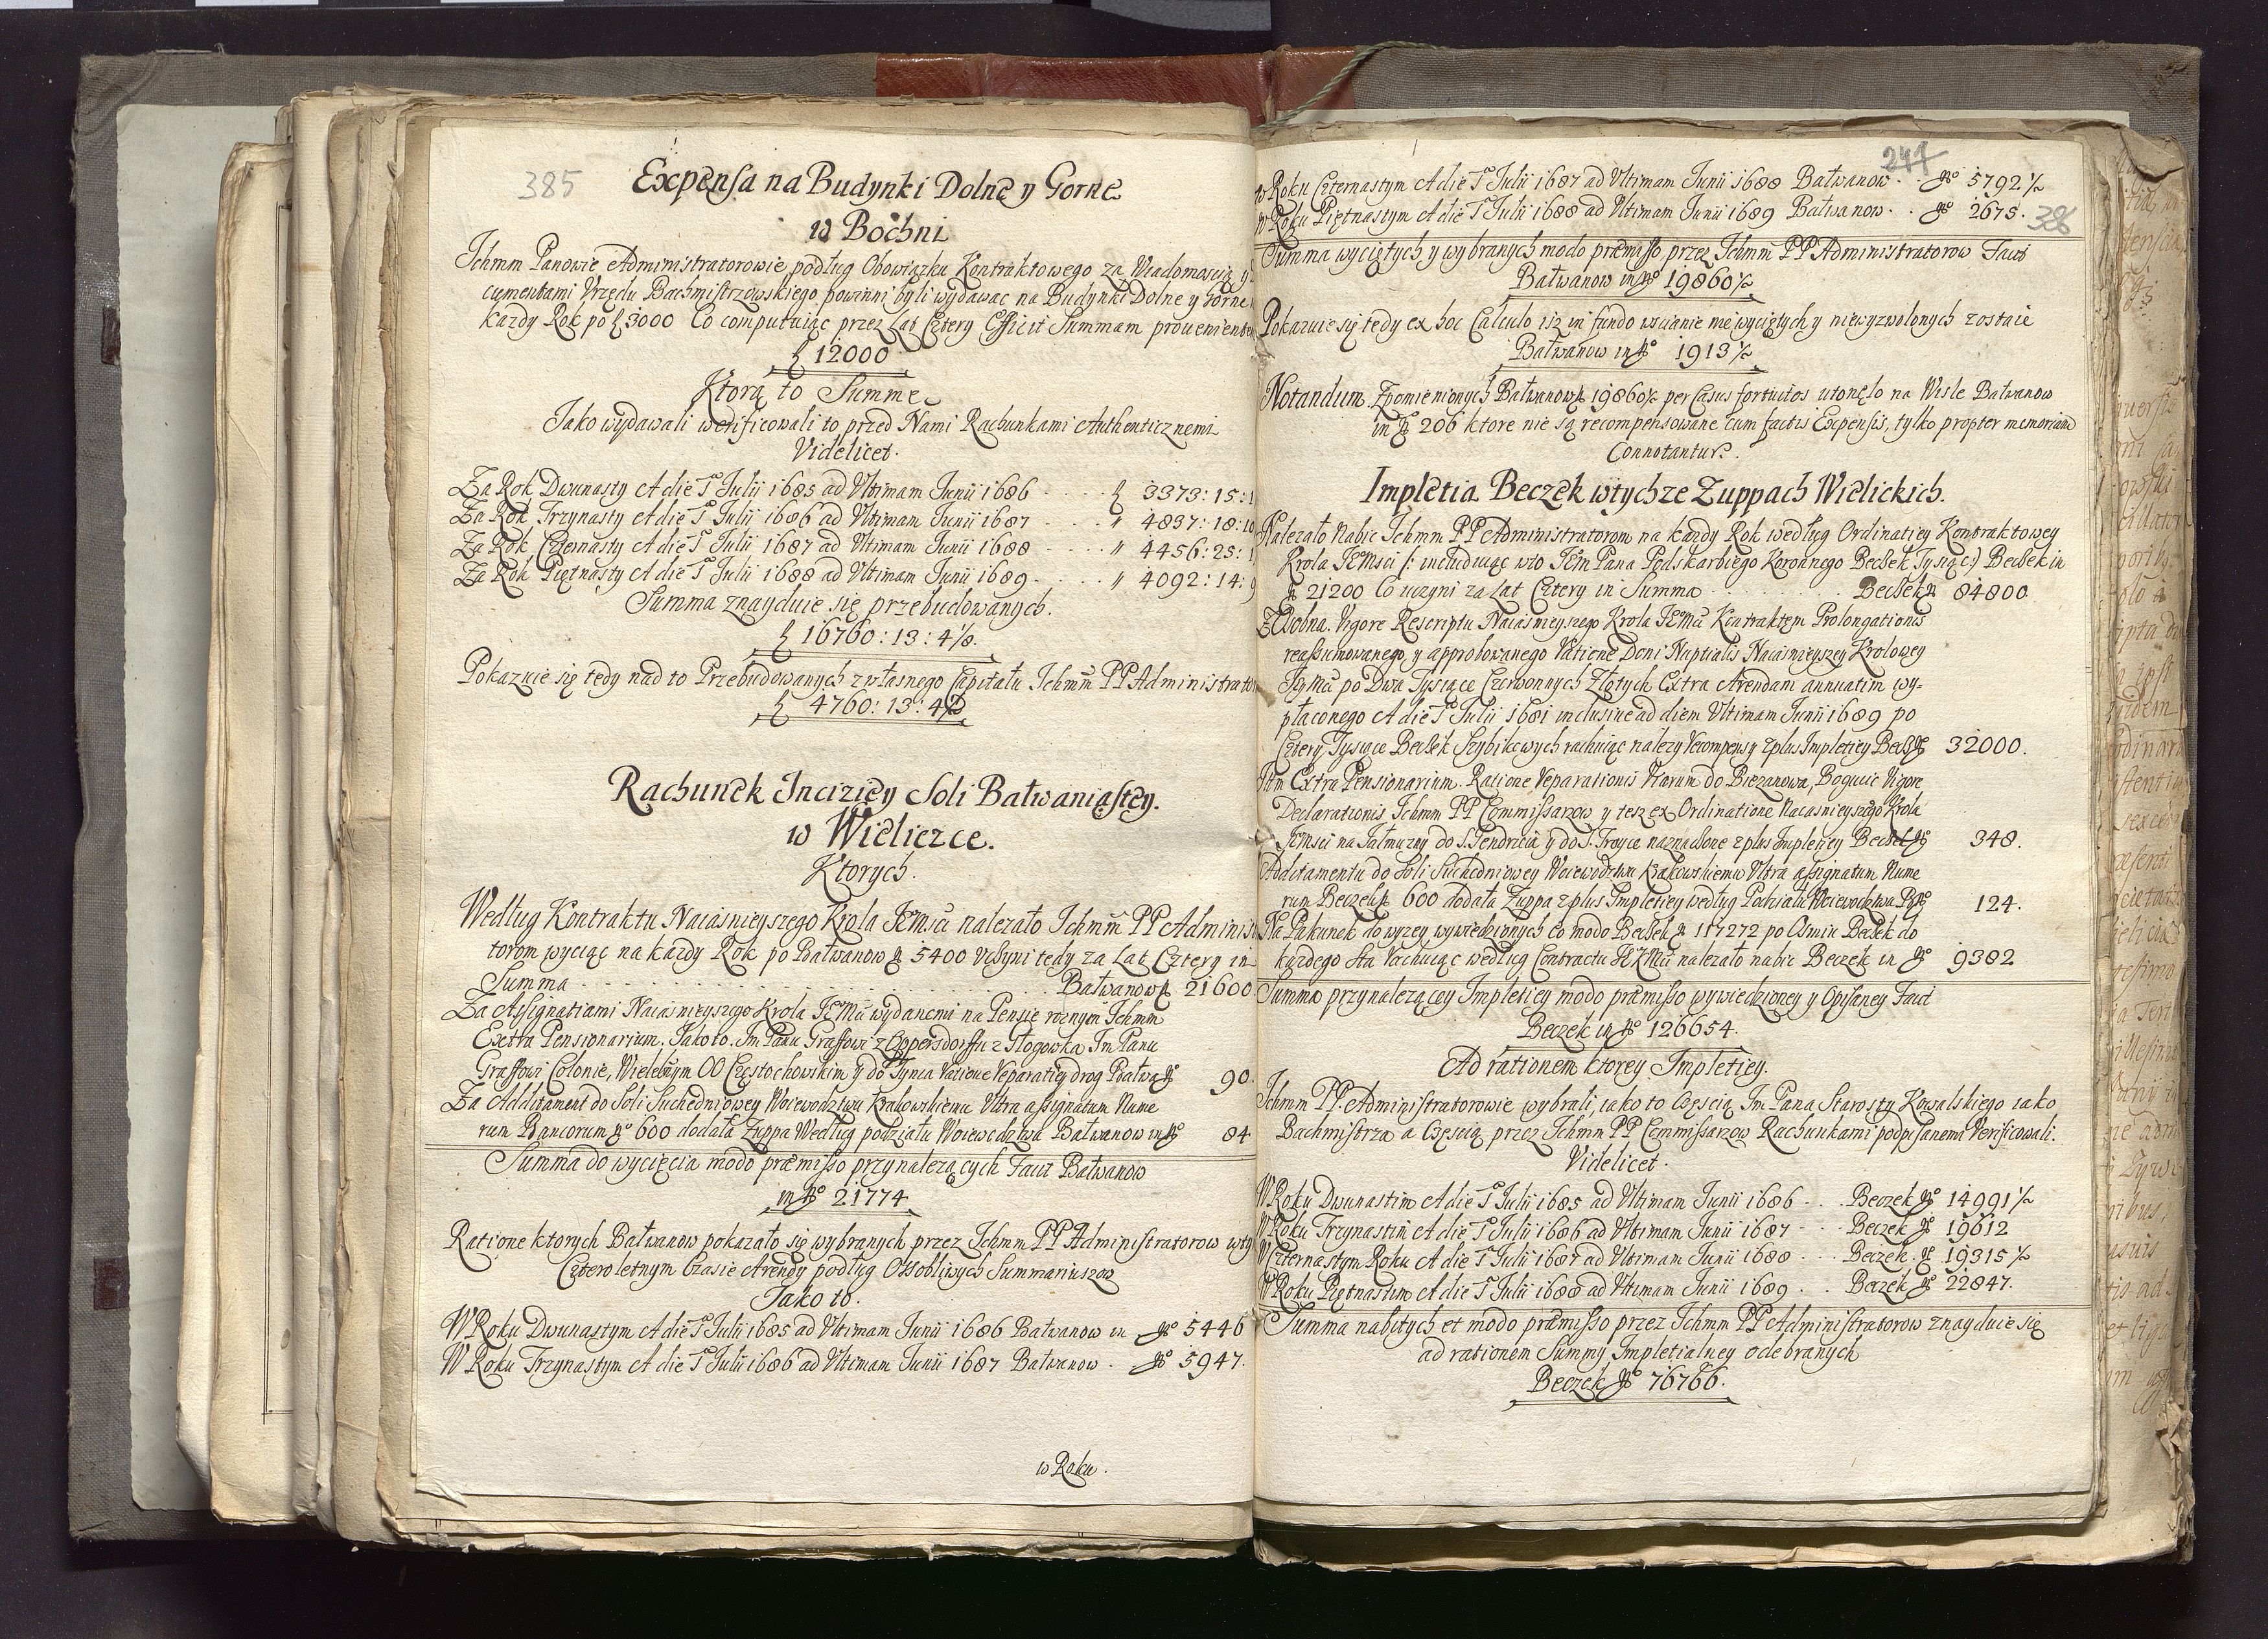 385
Expensa na Budynki Dolne y Gorne
w Bochni
Ichmm Panowie Administratorowie podług Obowiązku Kontraktowego za Wiadomoscią y
cumentami Vrzędu Bachmistrzowskiego powinni byli wydawac na Budynki Dolne y Gorne
kazdy Rok po f 3000 Co computuiąc przez Lat Cztery Efficit Summam
f 12000
Ktorą to Summę
Jako wydawali werificowali to przed Nami Rachunkami Authenticznemi
Videlicet.
Za Rok Dwunasty A die 1ma Julii 1685 ad Vltimam Junii 1686 f 3373:15:1
Za Rok Trzynasty A die 1ma Julii 1686 ad Vltimam Junii 1687 " 4837:18:10
Za Rok Czternasty A die 1ma Julii 1687 ad Vltimam Junii 1688 " 4456:25:1
Za Rok Piętnasty A die 1ma Julii 1688 ad Vltimam Junii 1689 " 4092:14:9
Summa znayduie się przebudowanych.
f 16760:13:4 1/8.
Pokazuie się tedy nad to Przebudowanych z własnego Capitału Ichmm PP Administrato
f 4760:13:4
Rachunek Inciziey Soli Bałwaniastey.
w Wieliczce.
Ktorych.
Według Kontraktu Naiasnieyszego Krola JEMsci nalezało Ichmm PP Adminis
torom wyciąc na kazdy Rok po Bałwanow No 5400 Vczyni tedy za Lat Cztery in
Summa Bałwanow No 21600
Za Assignatiami Naiasnieyszego Krola JEMci wydanemi na Pensie roznym Ichmm
Extra Pensionarium. Jako to. Jm Panu Graffowi z Oppersdorffu z Głogowka Jm Panu
Graffowi Colonie, Wielebnym OO Częstochowskim y do Tynca Ratione Reparatiey drog Bałwa No 90.
Za Additament do Soli Suchedniowey Woiewodztwu Krakowskiemu Vltra assignatum Nume
rum Bancorum No 600 dodała Zuppa Według podziału Woiewodztwa Bałwanow in No 84
Summa do wycięcia modo præmisso przynalezących Facit Bałwanow
in No 21774
Ratione ktorych Bałwanow pokazało się wybranych przez Ichmm PP Administratorow wty
Czteroletnym Czasie Arendy podług Osobliwych Summariuszow
Jako to.
W Roku Dwunastym A die 1ma Julii 1685 ad Vltimam Junii 1686 Bałwanow in No 5446
W Roku Trzynastym A die 1ma Julii 1686 ad Vltimam Junii 1687 Bałwanow. No 5947.
w Roku.
247
w Roku Czternastym A die 1ma Julii 1687 ad Vltimam Junii 1688 Bałwanow No 5792 1/2
w Roku Piętnastym A die 1ma Julii 1688 ad Vltimam Junii 1689 Bałwanow No 2675.
386
Summa wyciętych y wybranych modo præmisso przez Ichmm PP Administratorow Facit
Bałwanow in No 19860 1/2
Pokazuie się tedy ex hoc Calculo isz in fundo wscianie nie wyciętych y niewyzwolonych zostaie
Bałwanow in No 1913 1/2
Notandum. Zpomienionych Bałwanow No 19860 1/2 per Casus fortuitos utonęło na Wisle Bałwanow
in No 206 ktore nie są recompensowane cum factis Expensis, tylko propter memoriam
Connotantur.
Impletia Beczek wtychze Zuppach Wielickich.
Nalezało Nabic Ichmm PP Administratorom na kazdy Rok według Ordinatiey Kontraktowey
Krola JEMsci (: includuiąc wto JEm Pana Podskarbiego Koronnego Beczek Tysiąc:) Beczek in
No 21200 Co uczyni za Lat Cztery in Summa Beczek No 84800
Zosobna. Vigore Rescriptu Naiasnieyszego Krola JEMci Kontraktem Prolongationis
reassumowanego y approbowanego Ratione Doni Nuptialis Naiasnieyszey Krolowey
Jeymci po Dwa Tysiące Czerwonnych Złotych Extra Arendam annuatim wy-
płaconego A die 1ma Julii 1681 inclusive ad diem Vltimam Junii 1689 po
Cztery Tysiące Beczek Szybikowych rachuiąc nalezy Recompensy z plus Impletiey Becz No 32000.
Itm Extra Pensionarium. Ratione Reparationis Viarum do Biezanowa, Bogucic Vigore
Declarationis Ichmm PP Commissarzow y tesz ex Ordinatione Naiasnieyszego Krola
JEMsci na Jałmuzny do S. Jendrzeia y do S. Troyce naznaczone z plus Impletiey Beczek No 348.
Additamentu do Soli Suchedniowey Woiewodztwu Krakowskiemu Vltra assignatum Nume
rum Beczek No 600 dodała Zuppa z plus Impletiey według Podziału Woiewodztwa B No 124.
Na Pakunek do wyzey wywiedzionych eo modo Beczek No 117272 po Osmiu Beczek do
kazdego Sta Rachuiąc według Contractu JKMci nalezało nabic Beczek in No 9382
Summa przynalezącey Impletiey modo præmisso wywiedzioney y Opisaney Facit
Beczek in No 126654.
Ad rationem ktorey Impletiey.
Ichmm PP. Administratorowie wybrali, iako to Częscią Jm Pana Starosty Kowalskiego iako
Bachmistrza a Częscią przez Ichmm PP Commissarzow Rachunkami podpisanemi Verificowali.
Videlicet.
W Roku Dwunastim A die 1ma Julii 1685 ad Vltimam Junii 1686 Beczek No 14991 1/2
W Roku Trzynastim A die 1ma Julii 1686 ad Vltimam Junii 1687 Beczek No 19612
W Czternastym Roku A die 1ma Julii 1687 ad Vltimam Junii 1688 Beczek No 19315 1/2
W Roku Piętnastim A die 1ma Julii 1688 ad Vltimam Junii 1689 Beczek No 22847.
Summa nabitych et modo præmisso przez Ichmm PP Administratorow znayduie się
ad rationem Summy Impletialney odebranych
Beczek No 76766.